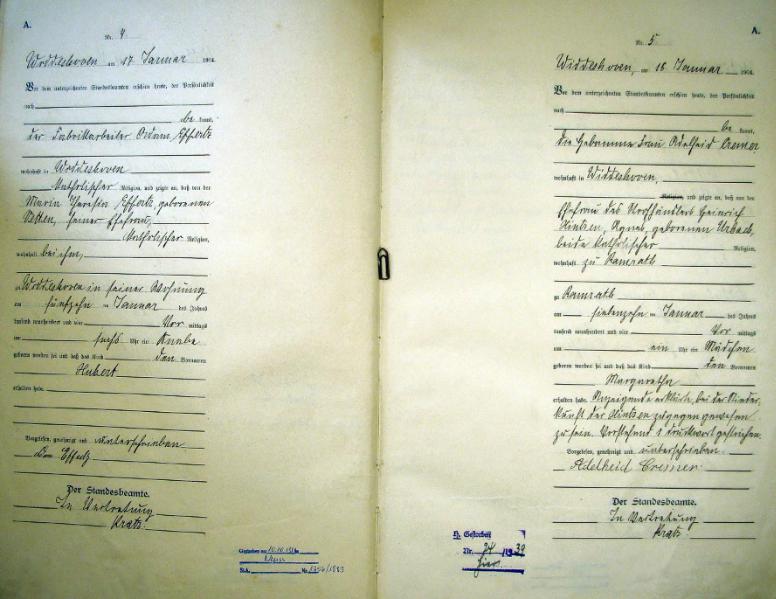 A.
Nr. 4
am 17 Januar 1904.
Vor dem unterzeichneten Standesbeamten erschien heute, der Persönlichkeit
nach
be kannt,
der Fabrikarbeiter Effertz
wohnhaft in
katholischer Religion, und zeigte an, daß von der
Maria Theresia Effertz, geborenen
seiner Ehefrau,
katholischer Religion,
wohnhaft bei ihm,
in seiner Wohnung
am fünfzehn ten Januar des Jahres
tausend neunhundert und vier Vor mittags
um sechs Uhr ein Knabe
geboren worden sei und daß das Kind den Vornamen
Hubert
erhalten habe.
Vorgelesen, genehmigt und unterschrieben
Der Standesbeamte.
In Vertretung
Kratz
A.
Nr. 5
Widdeshoven, am 18 Januar 1904.
Vor dem unterzeichneten Standesbeamten erschien heute, der Persönlichkeit
nach
be kannt,
die Hebamme Frau Adelheid Cremer
wohnhaft in Widdeshoven,
Religion, und zeigte an, daß von der
Ehefrau des Heinrich
Agnes, geborenen Urbach,
beide katholischer Religion,
wohnhaft zu Ramrath
zu Ramrath
am siebenzehn ten Januar des Jahres
tausend neunhundert und vier Vor mittags
um ein Uhr ein Mädchen
geboren worden sei und daß das Kind den Vornamen
Margaretha
erhalten habe. Anzeigende erklärte, bei der Nieder
kunft der zugegen gewesen
zu sein. Vorstehend 1 Druckwort gestrichen.
Vorgelesen, genehmigt und unterschrieben
Adelheid Cremer
Der Standesbeamte.
In Vertretung
Kratz
Gestorben am
St.A. Nr.
Gestorben
Nr. 24 / 1939